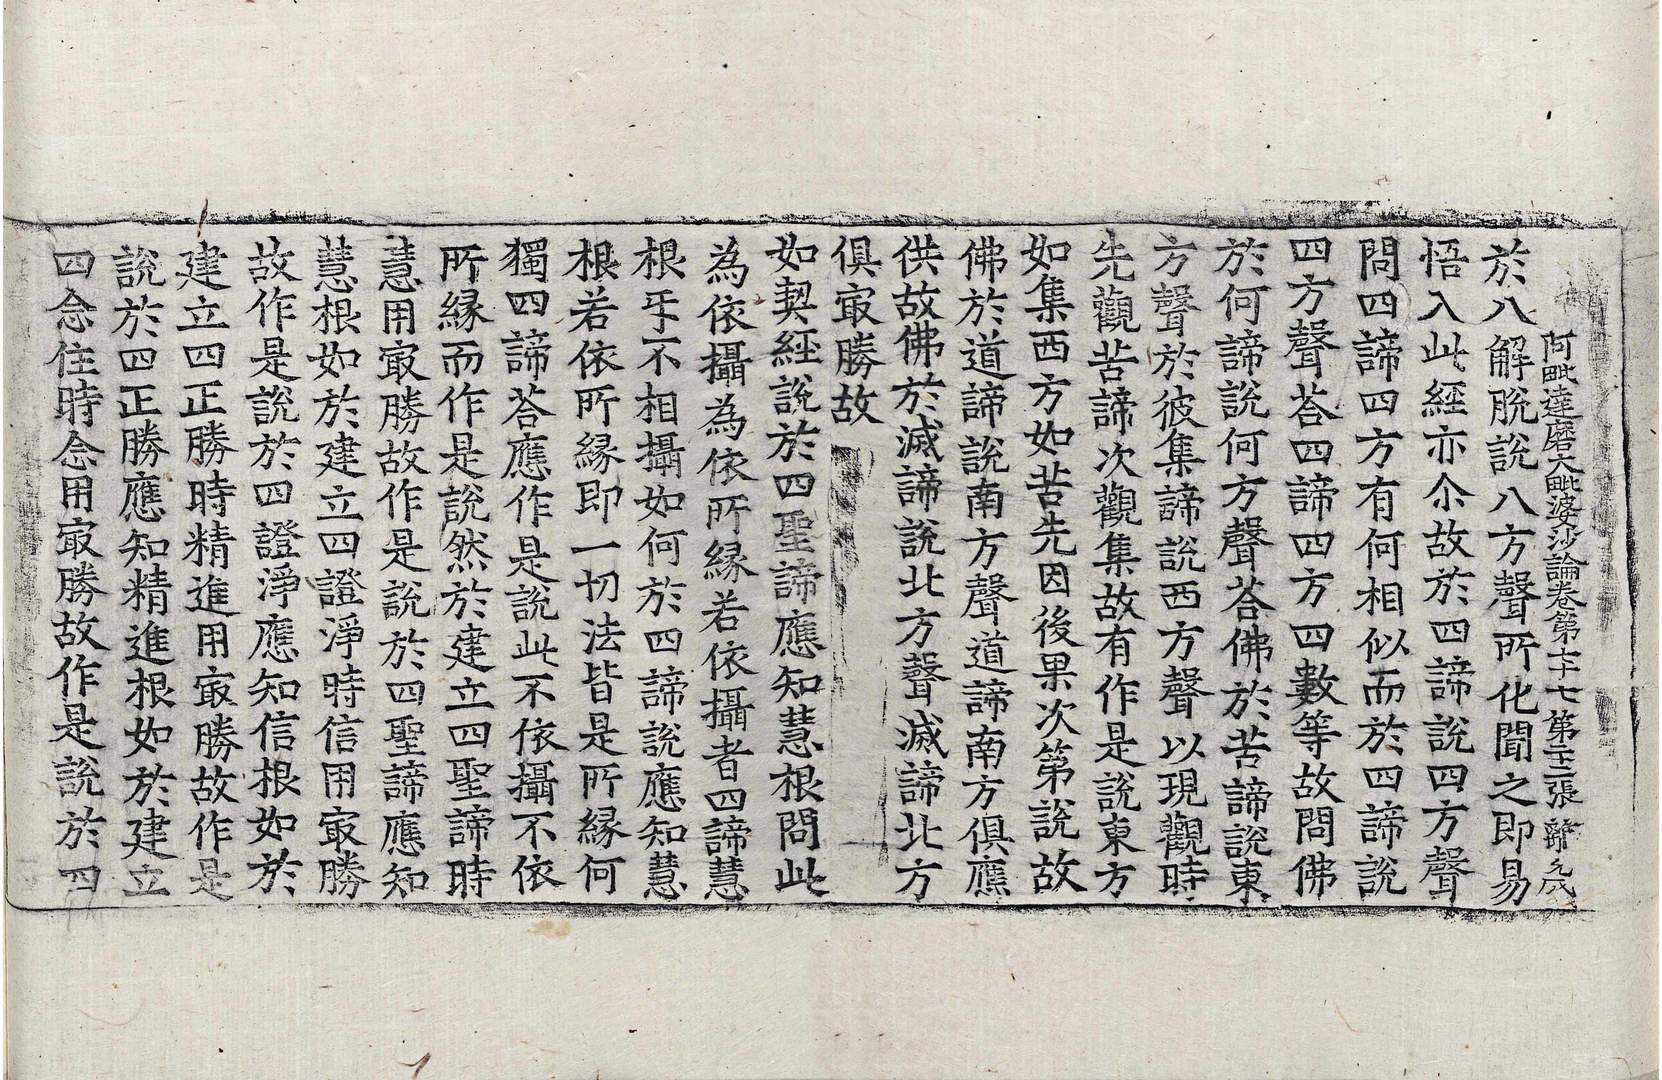 阿毗達磨大毗婆沙論卷第七十七 第二十二張 雞九代
於八解脫說八方聲所化聞之即易
悟入此經亦尒故於四諦說四方聲
問四諦四方有何相似而於四諦說
四方聲荅四諦四方四數等故問佛
於何諦說何方聲荅佛於苦諦說東
方聲於彼集諦說西方聲以現觀時
先觀苦諦次觀集故有作是說東方
如集西方如苦先因後果次第說故
佛於道諦說南方聲道諦南方俱應
供故佛於滅諦說北方聲滅諦北方
俱㝡勝故
如契經說於四聖諦應知慧根問此
為依攝為依所緣若依攝者四諦慧
根㸦不相攝如何於四諦說應知慧
根若依所緣即一切法皆是所緣何
獨四諦荅應作是說此不依攝不依
所緣而作是說然於建立四聖諦時
慧用㝡勝故作是說於四聖諦應知
慧根如於建立四證淨時信用㝡勝
故作是說於四證淨應知信根如於
建立四正勝時精進用㝡勝故作是
說於四正勝應知精進根如於建立
四念住時念用㝡勝故作是說於四